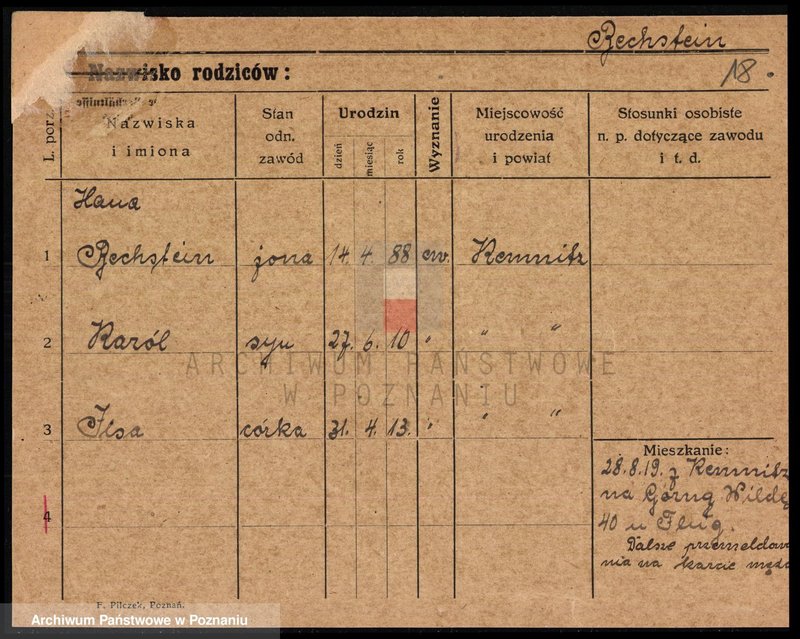 Bechstein
Nazwisko rodziców:
18.
L. porz.
Nazwiska i imiona
Stan odn. zawód
Urodzin
dzień
miesiąc
rok
Wyznanie
Miejscowość urodzenia i powiat
Stosunki osobiste n. p. dotyczące zawodu i t. d.
Hana
1 Bechstein żona 14. 4. 88 ew. Kemnitz
2 Karól syn 27. 6. 10 " " "
ARCHIWUM PAŃSTWOWE
W POZNANIU
3 Ilsa córka 31. 4. 13. " " "
Mieszkanie:
28.8.19. z Kemnitz
na Górną Wildę
4
40 u Flüg.
Dalsze przemeldowa
nia na karcie męża
F. Pilczek, Poznań.
Archiwum Państwowe w Poznaniu